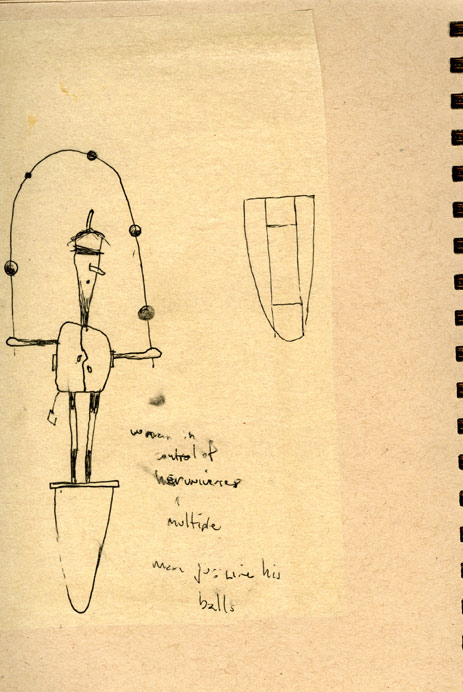 woman in
control of
her universes
multiple
man
his
balls